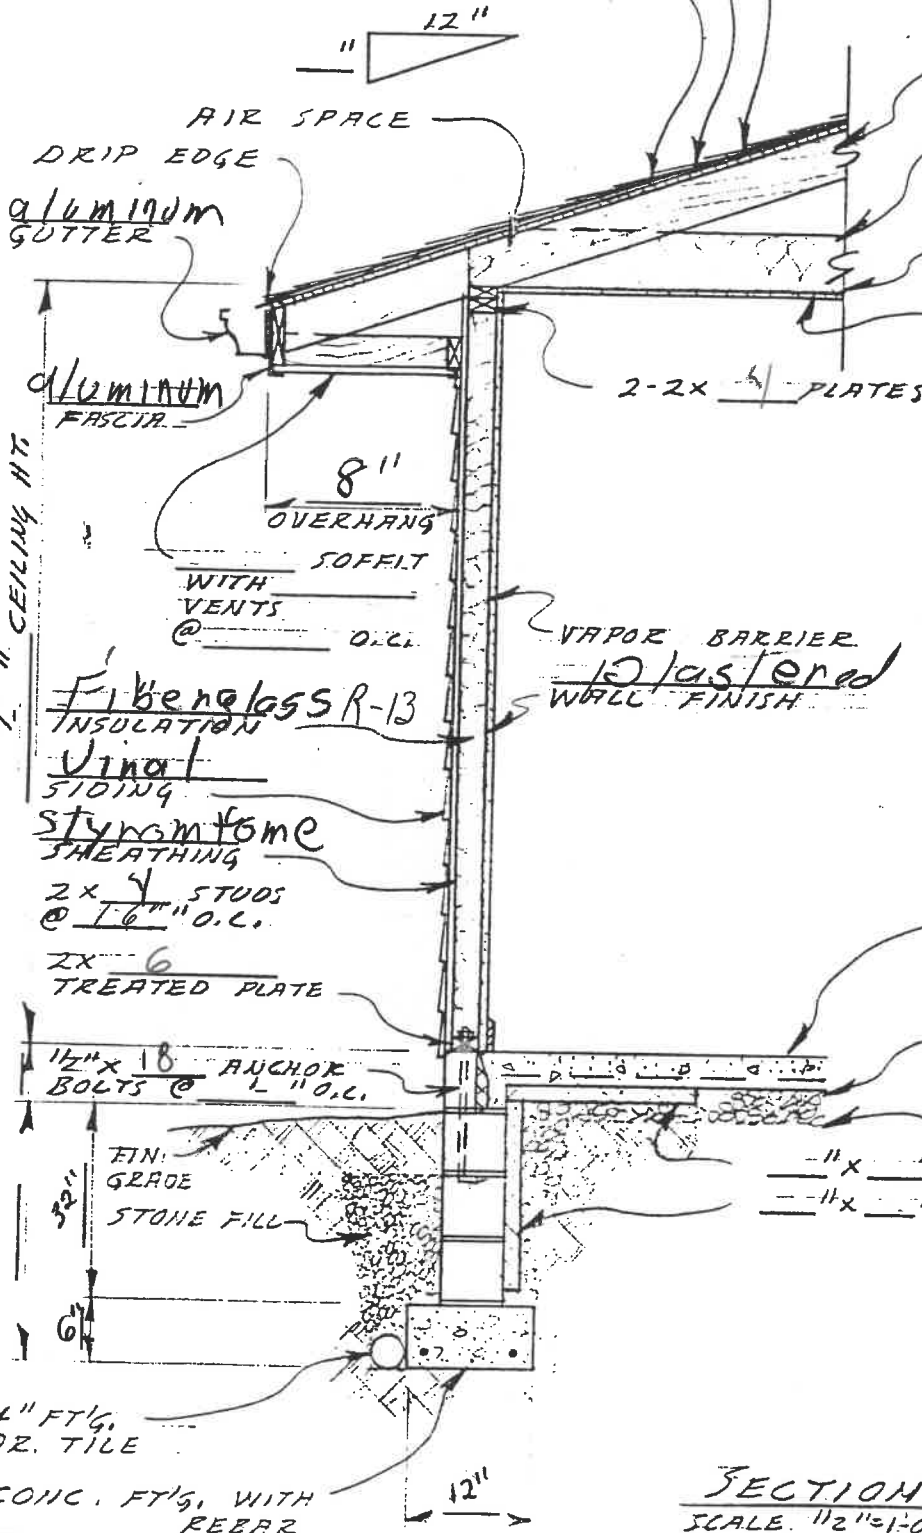 12"
"
AIR SPACE
DRIP EDGE
aluminum
GUTTER
aluminum
FASCIA
2-2x 4 PLATES
CEILING HT.
8"
OVERHANG
SOFFIT
WITH
VENTS
@ O.C.
VAPOR BARRIER
Plastered
WALL FINISH
Fiberglass R-13
INSULATION
Vinal
SIDING
Styromfome
SHEATHING
2 x 4 STUDS
@ 16" " O.C.
2x 6
TREATED PLATE
1/2" x 18 ANCHOR
BOLTS @ " O.C.
FIN.
GRADE
32"
STONE FILL
" x
" x
6"
4" FT'G.
DR. TILE
CONC. FT'G. WITH
REBAR
12"
SECTION
SCALE 1/2"=1'-0